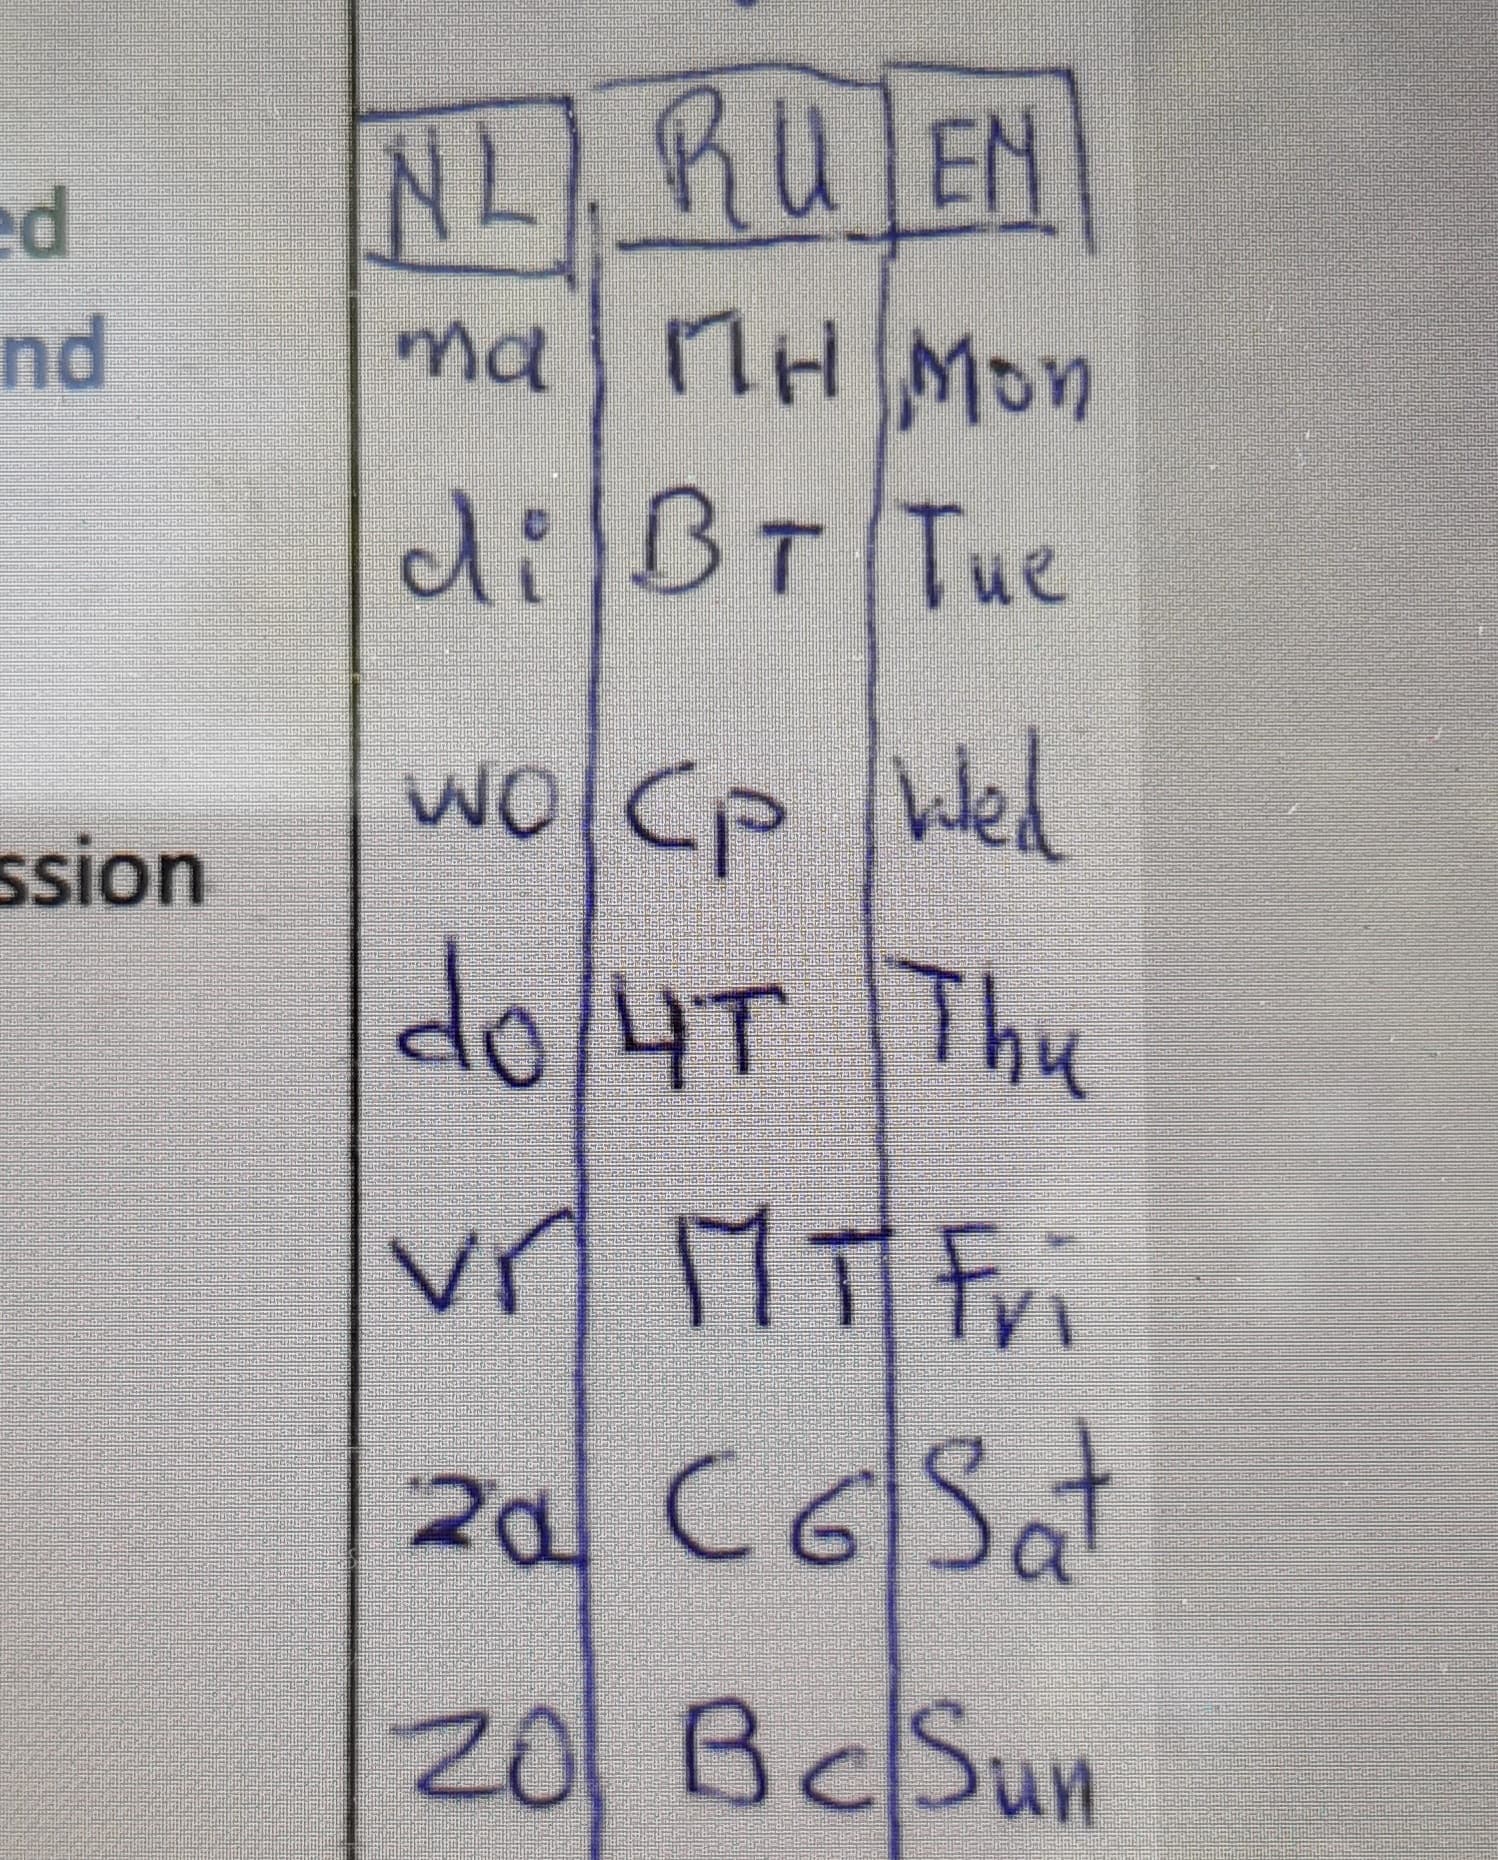 NL RU EN
ed
ma Пн Mon
nd
di Вт Tue
wo Ср Wed
ssion
do Чт Thu
vr Пт Fri
za Сб Sat
zo Вс Sun